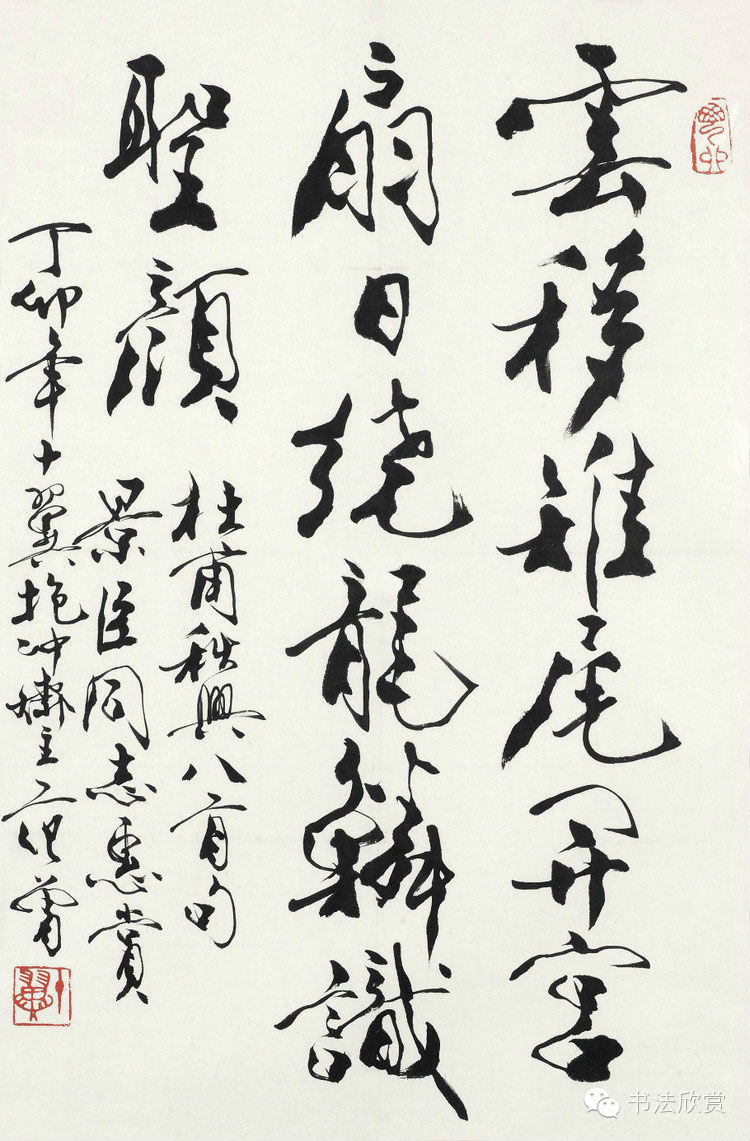 雲移雉尾開宮
扇日繞龍鱗識
聖顏
杜甫秋興八首句
景臣同志惠賞
丁卯年十翼抱沖齋主范曾
书法欣赏